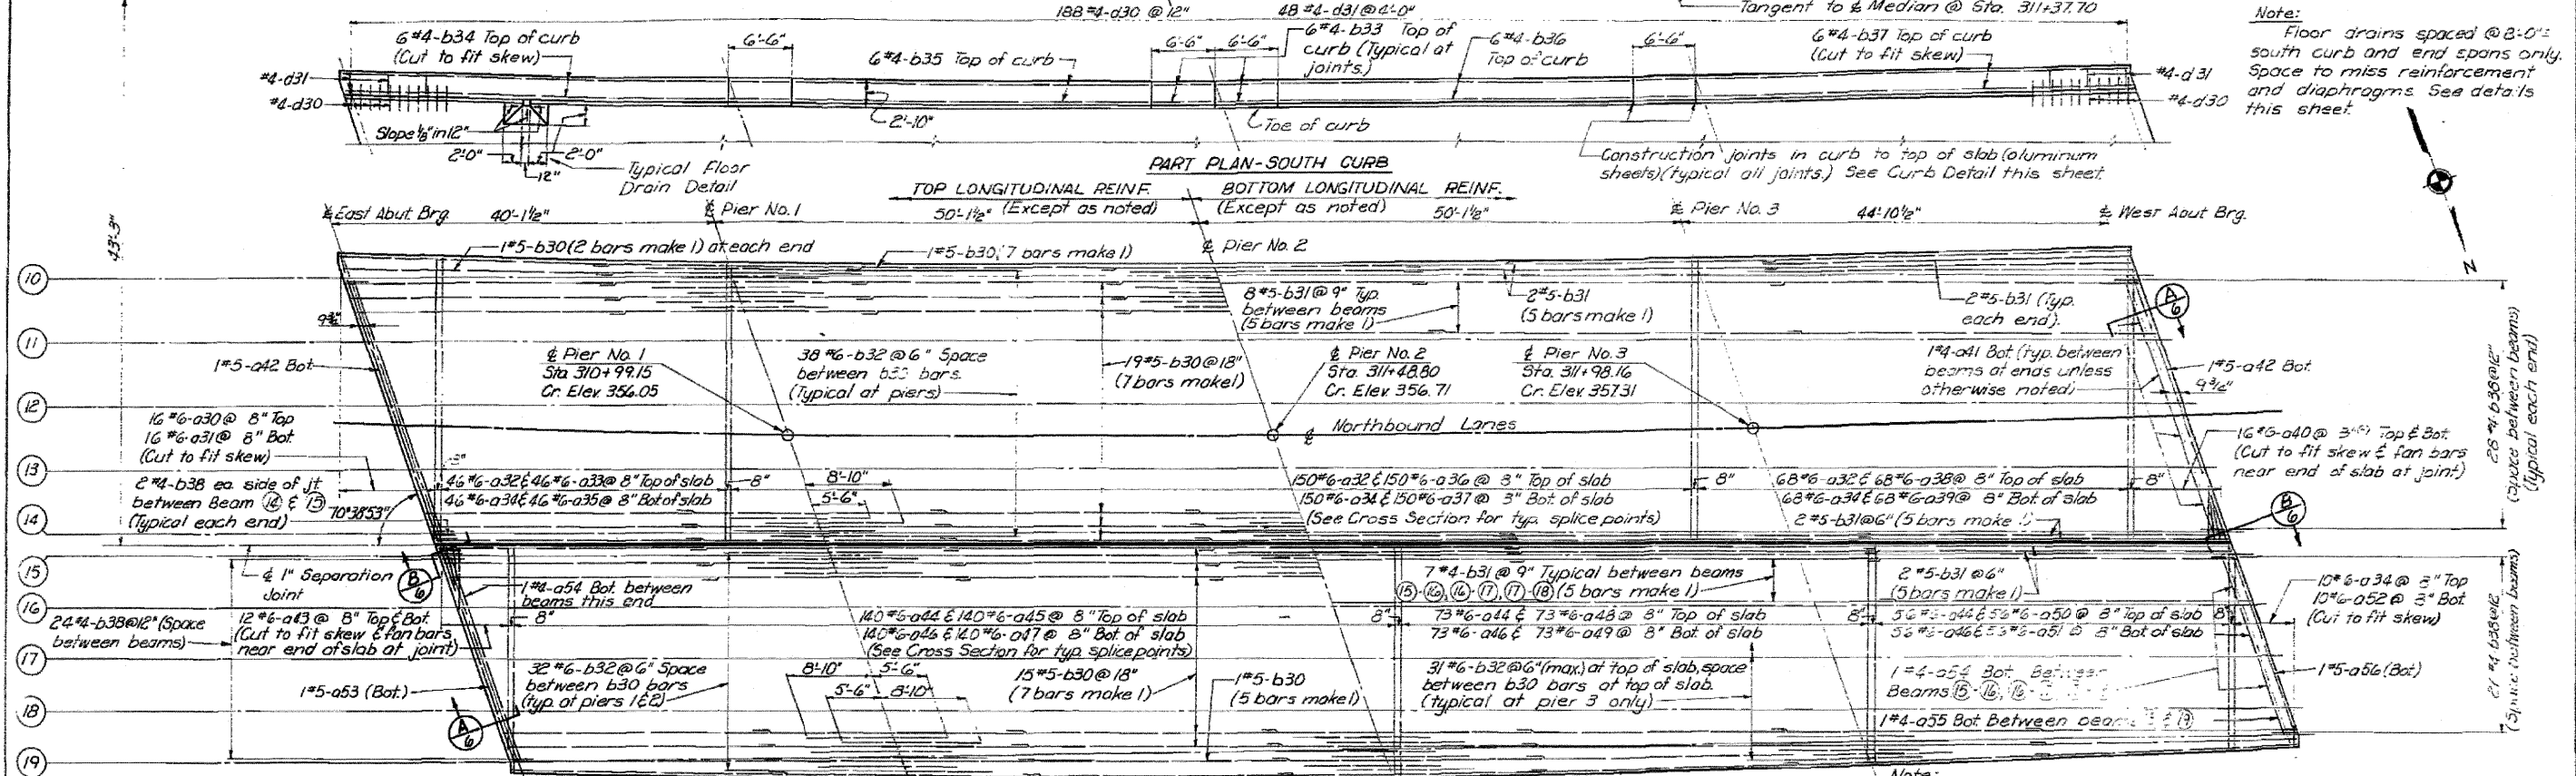 188 #4-d30 @ 12"
48 #4-d31 @ 4'-0"
Tangent to ℄ Median @ Sta. 311+37.70
Note:
Floor drains spaced @ 8'-0"±
south curb and end spans only.
Space to miss reinforcement
and diaphragms. See details
this sheet.
6 #4-b34 Top of curb
(Cut to fit skew)
6'-6"
6 #4-b35 Top of curb
6'-6"
6'-6"
6 #4-b33 Top of
curb (Typical at
joints.)
6 #4-b36
Top of curb
6'-6"
6 #4-b37 Top of curb
(Cut to fit skew)
#4-d31
#4-d30
#4-d31
#4-d30
Slope 1/8" in 12"
2'-0"
2'-0"
12"
Typical Floor
Drain Detail
2'-10"
Toe of curb
PART PLAN-SOUTH CURB
Construction joints in curb to top of slab (aluminum
sheets)(typical all joints.) See Curb Detail this sheet.
TOP LONGITUDINAL REINF.
(Except as noted)
BOTTOM LONGITUDINAL REINF.
(Except as noted)
℄ East Abut Brg.
40'-1 1/2"
℄ Pier No. 1
50'-1 1/2"
50'-1 1/2"
℄ Pier No. 3
44'-10 1/2"
℄ West Abut Brg.
43'-3"
1 #5-b30 (2 bars make 1) at each end
1 #5-b30 (7 bars make 1)
℄ Pier No. 2
N
10
11
12
13
14
15
16
17
18
19
8 #5-b31 @ 9" Typ.
between beams
(5 bars make 1)
2 #5-b31
(5 bars make 1)
2 #5-b31 (Typ.
each end).
A
6
1 #5-a42 Bot.
℄ Pier No. 1
Sta. 310+99.15
Gr. Elev. 356.05
38 #6-b32 @ 6" Space
between b30 bars.
(Typical at piers)
19 #5-b30 @ 18"
(7 bars make 1)
℄ Pier No. 2
Sta. 311+48.80
Gr. Elev. 356.71
℄ Pier No. 3
Sta. 311+98.16
Gr. Elev. 357.31
1 #4-a41 Bot. (typ. between
beams at ends unless
otherwise noted)
1 #5-a42 Bot.
9 3/4"
28 #4-b38 @ 12"
(Space between beams)
(Typical each end)
16 #6-a30 @ 8" Top
16 #6-a31 @ 8" Bot.
(Cut to fit skew)
℄ Northbound Lanes
16 #6-a40 @ Top & Bot.
(Cut to fit skew & fan bars
near end of slab at joint)
2 #4-b38 ea. side of jt.
between Beam 14 & 15
(Typical each end)
70°38'53"
46 #6-a32 & 46 #6-a33 @ 8" Top of slab
46 #6-a34 & 46 #6-a35 @ 8" Bot of slab
8"
8'-10"
5'-6"
150 #6-a32 & 150 #6-a36 @ 8" Top of slab
150 #6-a34 & 150 #6-a37 @ 8" Bot. of slab
(See Cross Section for typ. splice points)
8"
68 #6-a32 & 68 #6-a38 @ 8" Top of slab
68 #6-a34 & 68 #6-a39 @ 8" Bot. of slab
8"
2 #5-b31 @ 6" (5 bars make 1)
B
6
℄ 1" Separation
Joint
B
6
1 #4-a54 Bot. between
beams this end
7 #4-b31 @ 9" Typical between beams
15-16, 16-17, 17-18 (5 bars make 1)
2 #5-b31 @ 6"
(5 bars make 1)
10 #6-a34 @ 8" Top
10 #6-a52 @ 8" Bot.
(Cut to fit skew)
24 #4-b38 @ 12" (Space
between beams)
12 #6-a43 @ 8" Top & Bot.
(Cut to fit skew & fan bars
near end of slab at joint)
8"
140 #6-a44 & 140 #6-a45 @ 8" Top of slab
140 #6-a46 & 140 #6-a47 @ 8" Bot. of slab
(See Cross Section for typ. splice points)
8"
73 #6-a44 & 73 #6-a48 @ 8" Top of slab
73 #6-a46 & 73 #6-a49 @ 8" Bot of slab
8"
56 #6-a44 & 56 #6-a50 @ 8" Top of slab
56 #6-a46 & 56 #6-a51 @ 8" Bot of slab
8"
1 #5-a53 (Bot.)
32 #6-b32 @ 6" Space
between b30 bars
(typ. at piers 1&2)
8'-10"
5'-6"
5'-6"
8'-10"
15 #5-b30 @ 18"
(7 bars make 1)
1 #5-b30
(5 bars make 1)
31 #6-b32 @ 6" (max.) at top of slab, space
between b30 bars at top of slab.
(typical at pier 3 only)
1 #4-a54 Bot. Between
Beams 15-16, 16-
1 #4-a55 Bot. Between beams
1 #5-a56 (Bot)
21 #4-b38 @ 12
(Space between beams)
A
6
Note: